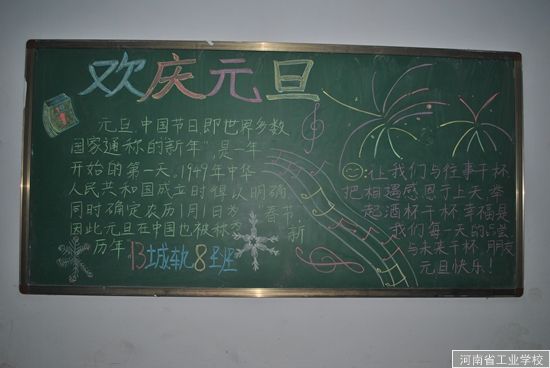 欢庆元旦
元旦,中国节日即世界多数
国家通称的“新年”,是一年
开始的第一天,1949年中华
人民共和国成立时得以明确
同时确定农历1月1日为 春节,
因此元旦在中国也被称为 新
历年
13城轨8班
让我们与往事干杯
把相遇感恩于上天举
起酒杯干杯幸福是
我们每一天的
与未来干杯 朋友
元旦快乐!
河南省工业学校